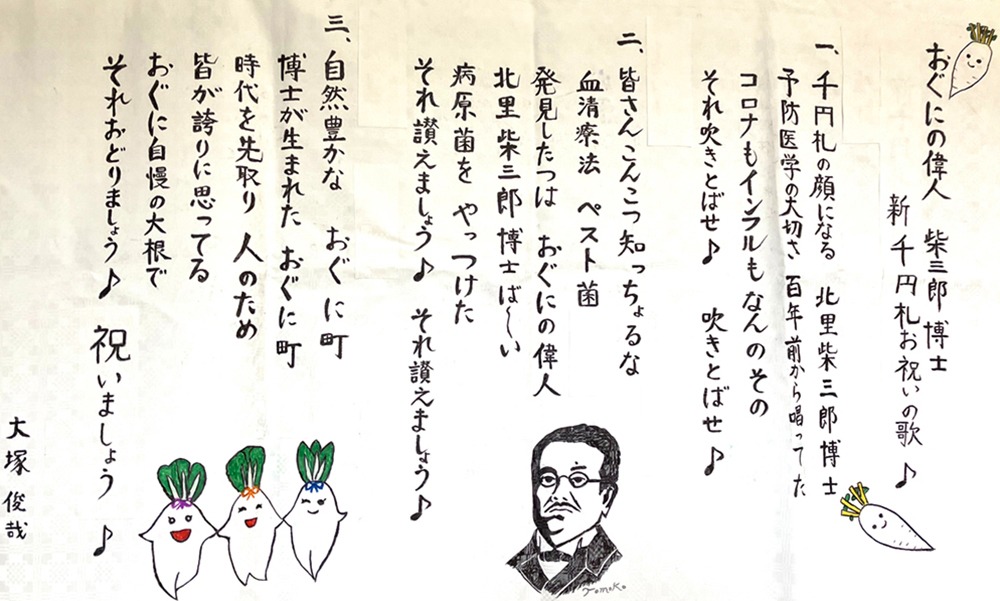 おぐにの偉人　柴三郎博士
新千円札お祝いの歌♪
一、千円札の顔になる　北里柴三郎博士
予防医学の大切さ　百年前から唱ってた
コロナもインフルもなんのその
それ吹きとばせ♪　吹きとばせ♪
二、皆さんこんこつ知っちょるな
血清療法　ペスト菌
発見したつは　おぐにの偉人
北里柴三郎博士ば〜い
病原菌を　やっつけた
それ讃えましょう♪　それ讃えましょう♪
三、自然豊かな　おぐに町
博士が生まれた　おぐに町
時代を先取り　人のため
皆が誇りに思ってる
おぐに自慢の大根で
それおどりましょう♪　祝いましょう♪
大塚俊哉
Tomoko